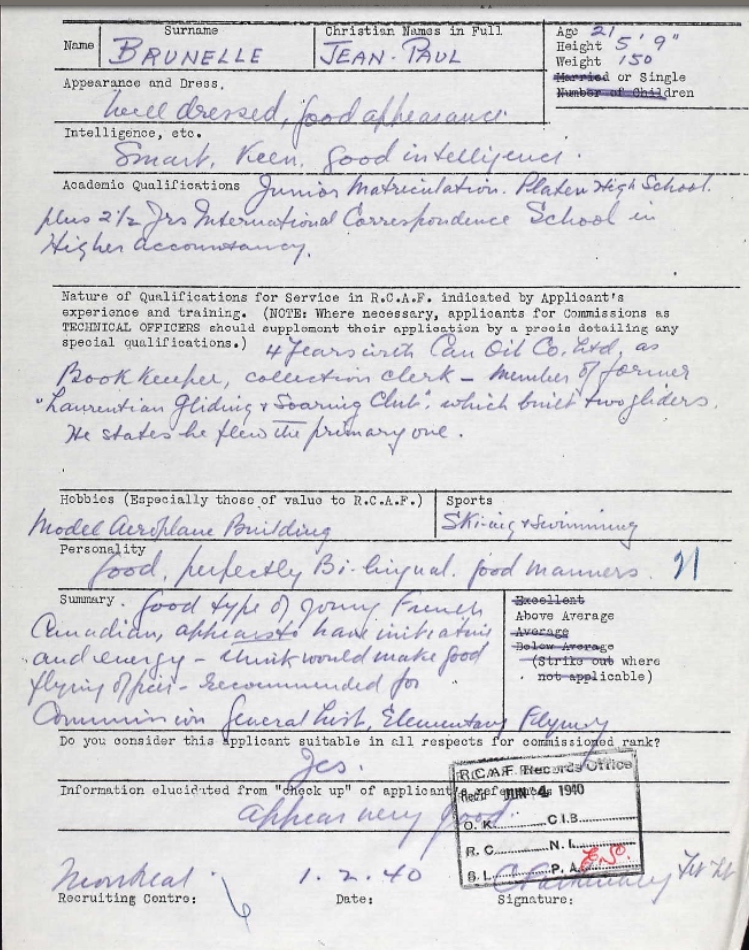 Surname
Christian Names in Full
Name
BRUNELLE
JEAN-PAUL
Age 21
Height 5'9"
Weight 150
Married or Single
Number of Children
Appearance and Dress.
Well dressed, good appearance.
Intelligence, etc.
Smart, Keen, Good intelligence.
Academic Qualifications Junior Matriculation. Platen High School.
plus 2½ Yrs International Correspondence School in
Higher accountancy.
Nature of Qualifications for Service in R.C.A.F. indicated by Applicant's
experience and training. (NOTE: Where necessary, applicants for Commissions as
TECHNICAL OFFICERS should supplement their application by a precis detailing any
special qualifications.) 4 Years with Can Oil Co. Ltd, as
Book Keeper, collection clerk - member of former
"Laurentian Gliding & Soaring Club", which built two gliders.
He states he flew the primary one.
Hobbies (Especially those of value to R.C.A.F.)
Model Aeroplane Building
Sports
Skiing & Swimming
Personality
Good, perfectly Bi-lingual. good manners. 21
Summary. Good type of young French
Canadian, appears to have initiative
and energy - think would make good
flying officer - Recommended for
Commission General List, Elementary Flying
Excellent
Above Average
Average
Below Average
(Strike out where
not applicable)
Do you consider this applicant suitable in all respects for commissioned rank?
Yes.
Information elucidated from "check up" of applicant's references
appear very good.
R.C.A.F. Records Office
Rec'd JUN 4 1940
O.K. C.I.B.
R.C. N.I.
S.L. P.A.
Montreal
1.2.40
Flt Lt
Recruiting Centre:
Date:
Signature: